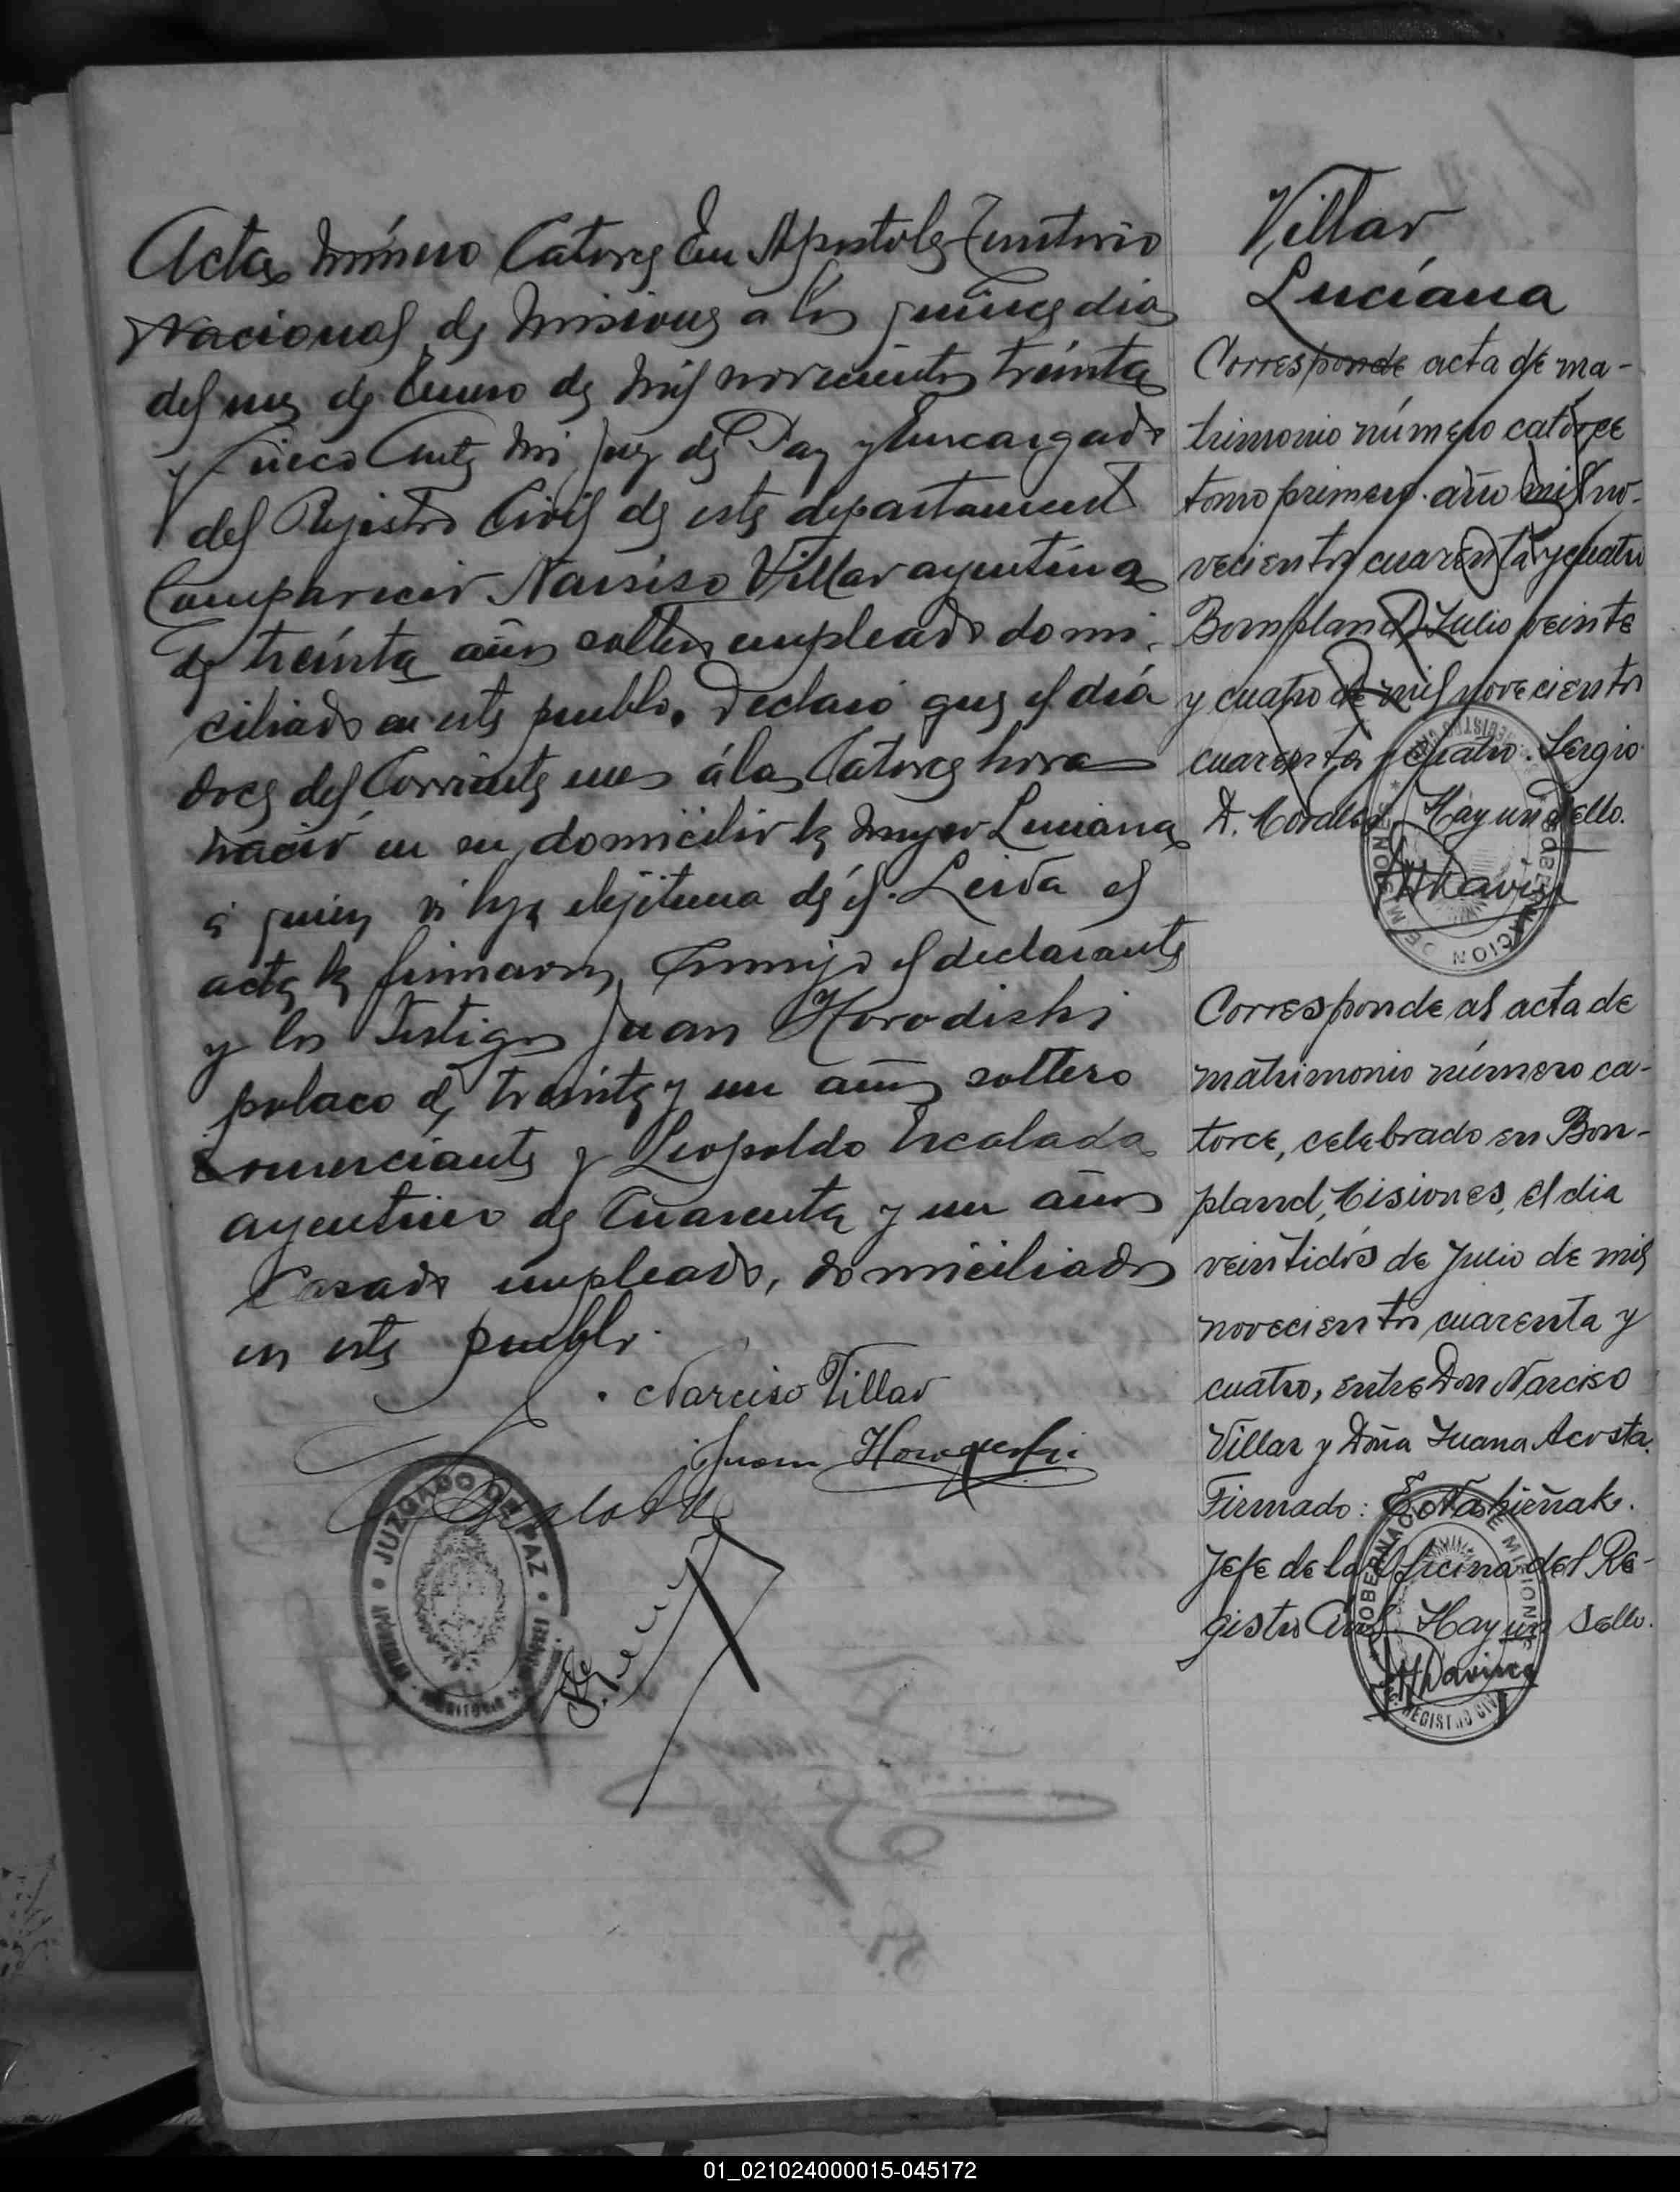 Acta Número Catorce En Apostoles Territorio
Nacional de Misiones a los quince dias
del mes de Enero de mil novecientos treinta
y Cinco Ante Mi Juez de Paz y Encargado
del Rejistro Civil de este departamento
Comparecio Narsiso Villar argentino
de treinta años soltero empleado domi-
ciliado en este pueblo. Declaró que el día
doce del Corriente mes á las Catorce horas
nació en su domicilio la mujer Luciana
á quien hija elejitima de él. Leida el
acta la firmaron Conmigo el declarante
y los Testigos Juan Horodiski
polaco de treinta y un años soltero
comerciante y Leopoldo Escalada
argentino de Cuarenta y un años
Casado empleado, domiciliados
en este pueblo.
Narciso Villar
Juan
JUZGADO DE PAZ
Villar
Luciana
Corresponde acta de ma-
trimonio número catorce
tomo primero. año mil no-
vecientos cuarenta y cuatro
Bompland, Julio veinte
y cuatro de mil novecientos
cuarenta y cuatro. Sergio
D. Morales Hay un sello.
GOBERNACION DE MISIONES
Corresponde al acta de
matrimonio número ca-
torce, celebrado en Bon-
pland, Misiones, el dia
veintidós de Julio de mil
novecientos cuarenta y
cuatro, entre Don Narciso
Villar y Doña Juana Acosta.
Firmado:
Jefe de la Oficina del Re-
gistro Civil Hay un sello.
GOBERNACION DE MISIONES
REGISTRO CIVIL
01_021024000015-045172